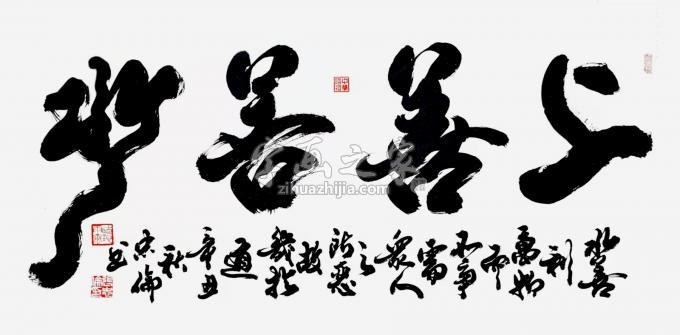 上善若水
水善
利
萬物
而
不爭
處
眾人
之
所惡
故
幾於
道
辛丑
秋
倫
书
字画之家
zihuazhijia.com